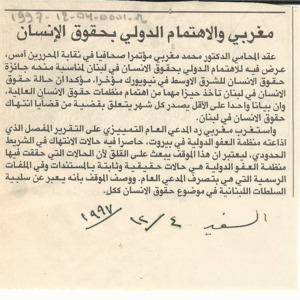 1997-12-04-0001-2
مغربي والاهتمام الدولي بحقوق الإنسان
عقد المحامي الدكتور محمد مغربي مؤتمرا صحافيا في نقابة المحررين أمس،
عرض فيه للاهتمام الدولي بحقوق الإنسان في لبنان لمناسبة منحه جائزة
حقوق الإنسان للشرق الأوسط في نيويورك مؤخرا، مؤكدا ان حالة حقوق
الإنسان في لبنان تأخذ حيزا مهما من اهتمام منظمات حقوق الإنسان العالمية،
وان بيانا واحدا على الأقل يصدر كل شهر يتعلق بقضية من قضايا انتهاك
حقوق الإنسان في لبنان.
واستغرب مغربي رد المدعي العام التمييزي على التقرير المفصل الذي
اذاعته منظمة العفو الدولية في بيروت، حاصرا فيه حالات الانتهاك في الشريط
الحدودي، ليعتبر ان هذا الموقف يبعث على القلق لأن الحالات التي حققت فيها
منظمة العفو الدولية هي حالات حقيقية وثابتة بالمستندات وفي الملفات
الرسمية التي هي بتصرف المدعي العام. ووصف الموقف بأنه يعبر عن سلبية
السلطات اللبنانية في موضوع حقوق الإنسان ككل.
السفير ٤/١٢/١٩٩٧